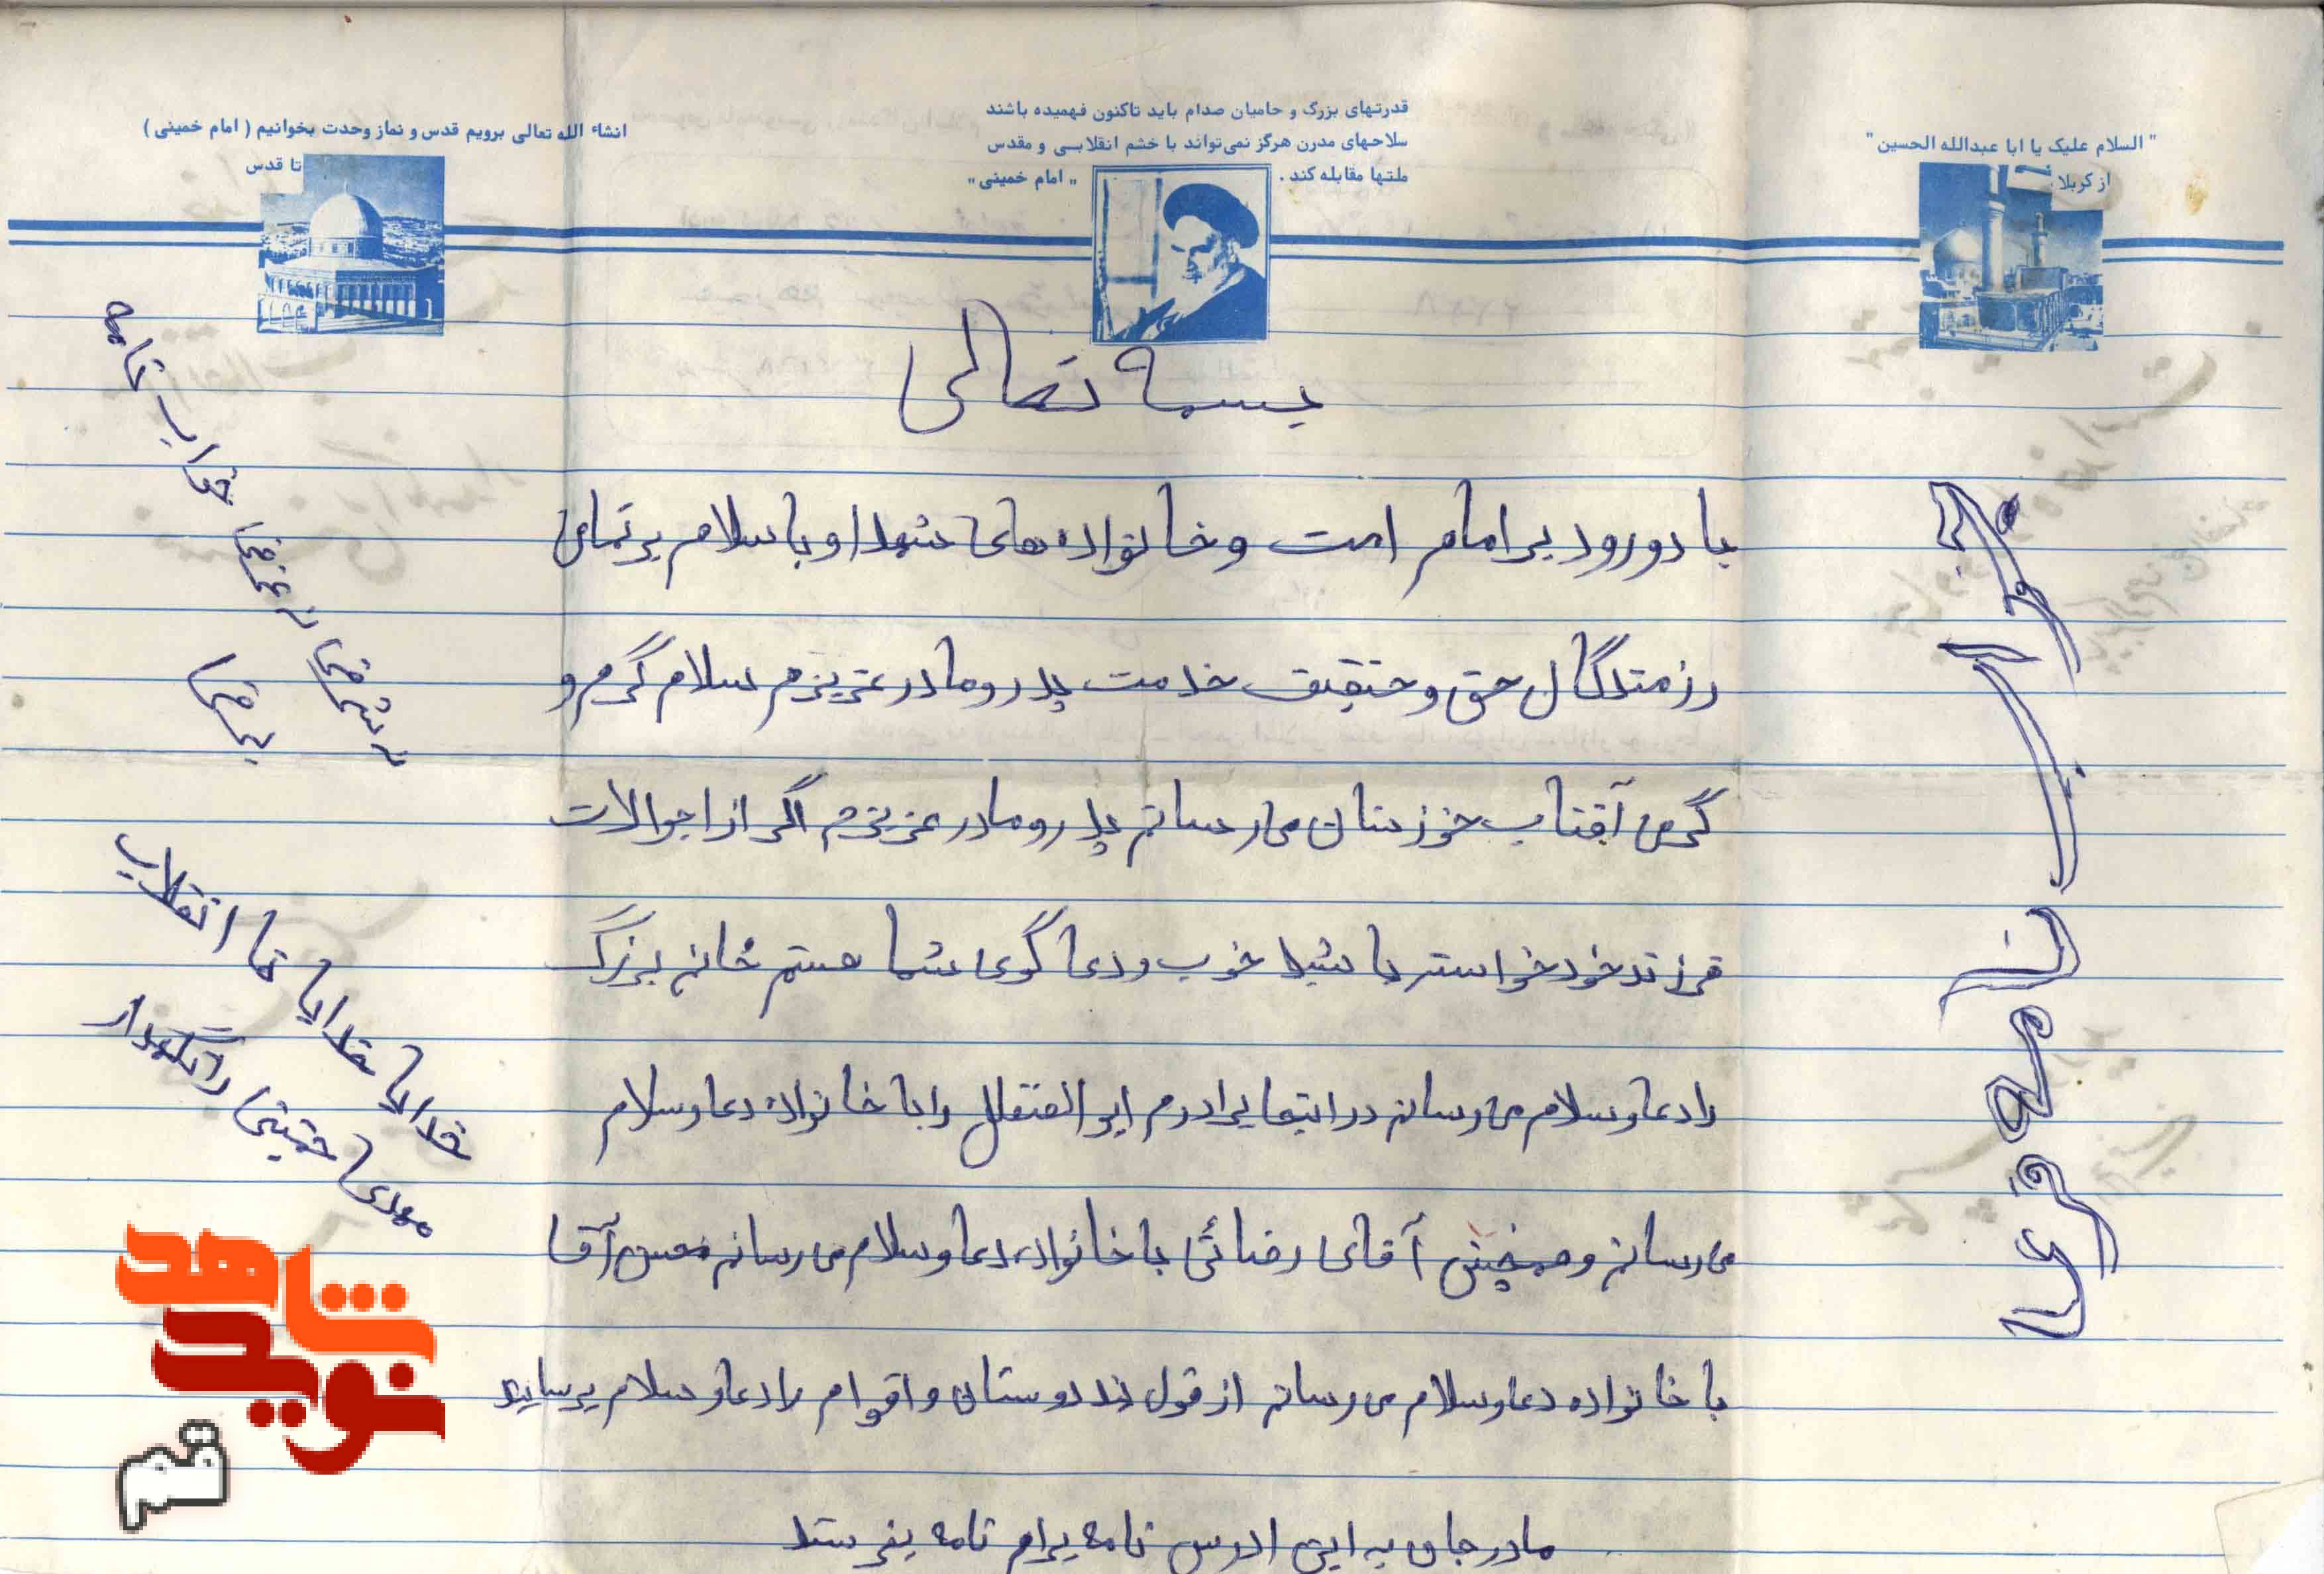 " السلام علیک یا ابا عبدالله الحسین "
از کربلا
قدرتهای بزرگ و حامیان صدام باید تاکنون فهمیده باشند
سلاحهای مدرن هرگز نمی‌تواند با خشم انقلابی و مقدس
ملتها مقابله کند . " امام خمینی "
انشاء الله تعالی برویم قدس و نماز وحدت بخوانیم ( امام خمینی )
تا قدس
بسمه تعالی
با دورود بر امام امت و خانواده های شهدا و با سلام بر تمامی
رزمندگال حق و حقیقت خدمت پدر و مادر عزیزم سلام گرم و
گرمی آفتاب خوزستان می رسانم پدر و مادر عزیزم اگر از احوالات
فرزند خود خواسته باشید خوب و دعا گوی شما هستم بزرگ
را دعا و سلام می رسانم در انتها برادرم ابوالفضل را با خانواده دعا و سلام
می رسانم و همچنین آقای رضائی با خانواده دعا و سلام می رسانم آقا
با خانواده دعا و سلام می رسانم از قول دوستان و اقوام را دعا و سلام برسانید
مادر جان به این ادرس نامه برام نامه بفرستد
جواب نامه
فوری
جواب نامه
خدایا خدایا تا انقلاب
مهدی خمینی را نگهدار
شاهد
نوید
قم